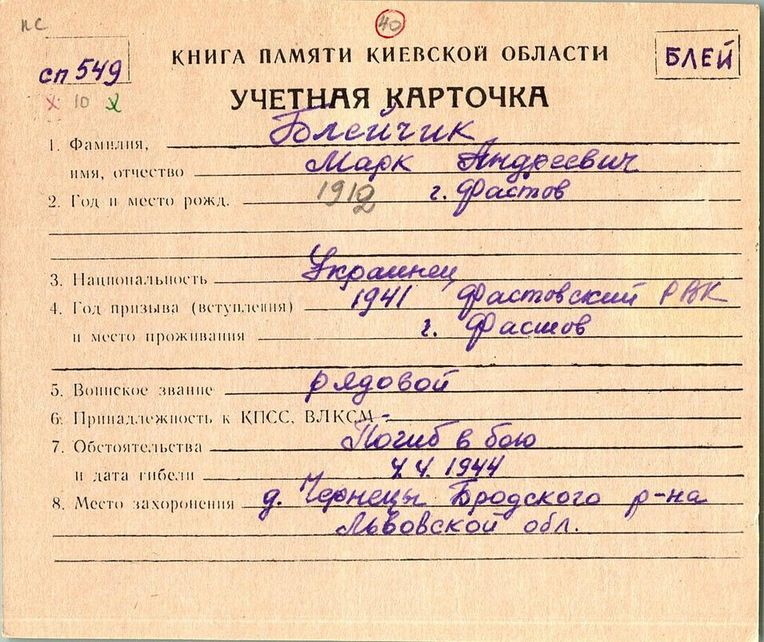 ПС
40
сп 549
КНИГА ПАМЯТИ КИЕВСКОЙ ОБЛАСТИ
БЛЕЙ
х 10
УЧЕТНАЯ КАРТОЧКА
1. Фамилия, Блейчик
имя, отчество Марк Андреевич
2. Год и место рожд. 1912 г. Фастов
3. Национальность Украинец
4. Год призыва (вступления) 1941 Фастовский РВК
и место проживания г. Фастов
5. Воинское звание рядовой
6. Принадлежность к КПСС, ВЛКСМ
7. Обстоятельства Погиб в бою
и дата гибели 4.4.1944
8. Место захоронения д. Чернецы Бродского р-на
Львовской обл.